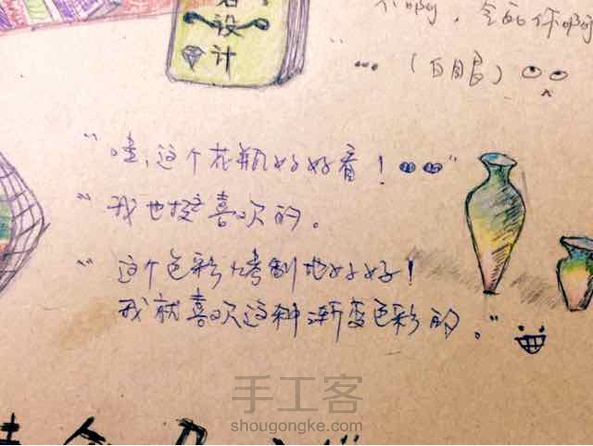 设
计
“ …（白眼）
“哇，这个花瓶好好看！”
“我也挺喜欢的。
“这个色彩烤制地好好！
我就喜欢这种渐变色彩的。”
手工客
shougongke.com